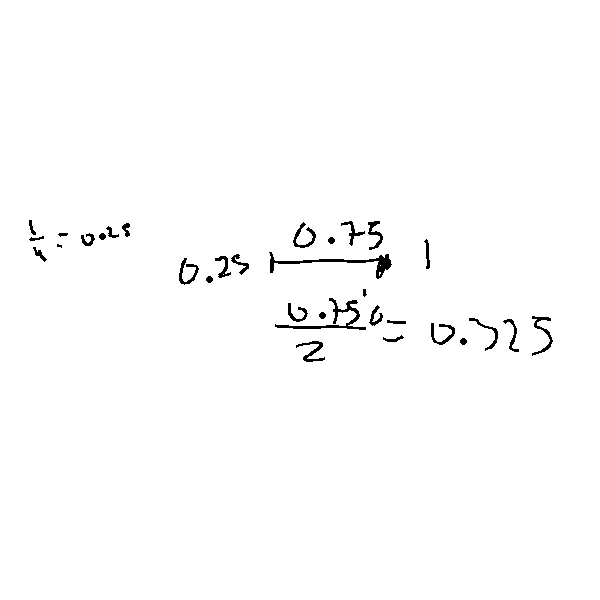 1/4 = 0.25
0.75
0.25 1
0.75'0/2 = 0.325